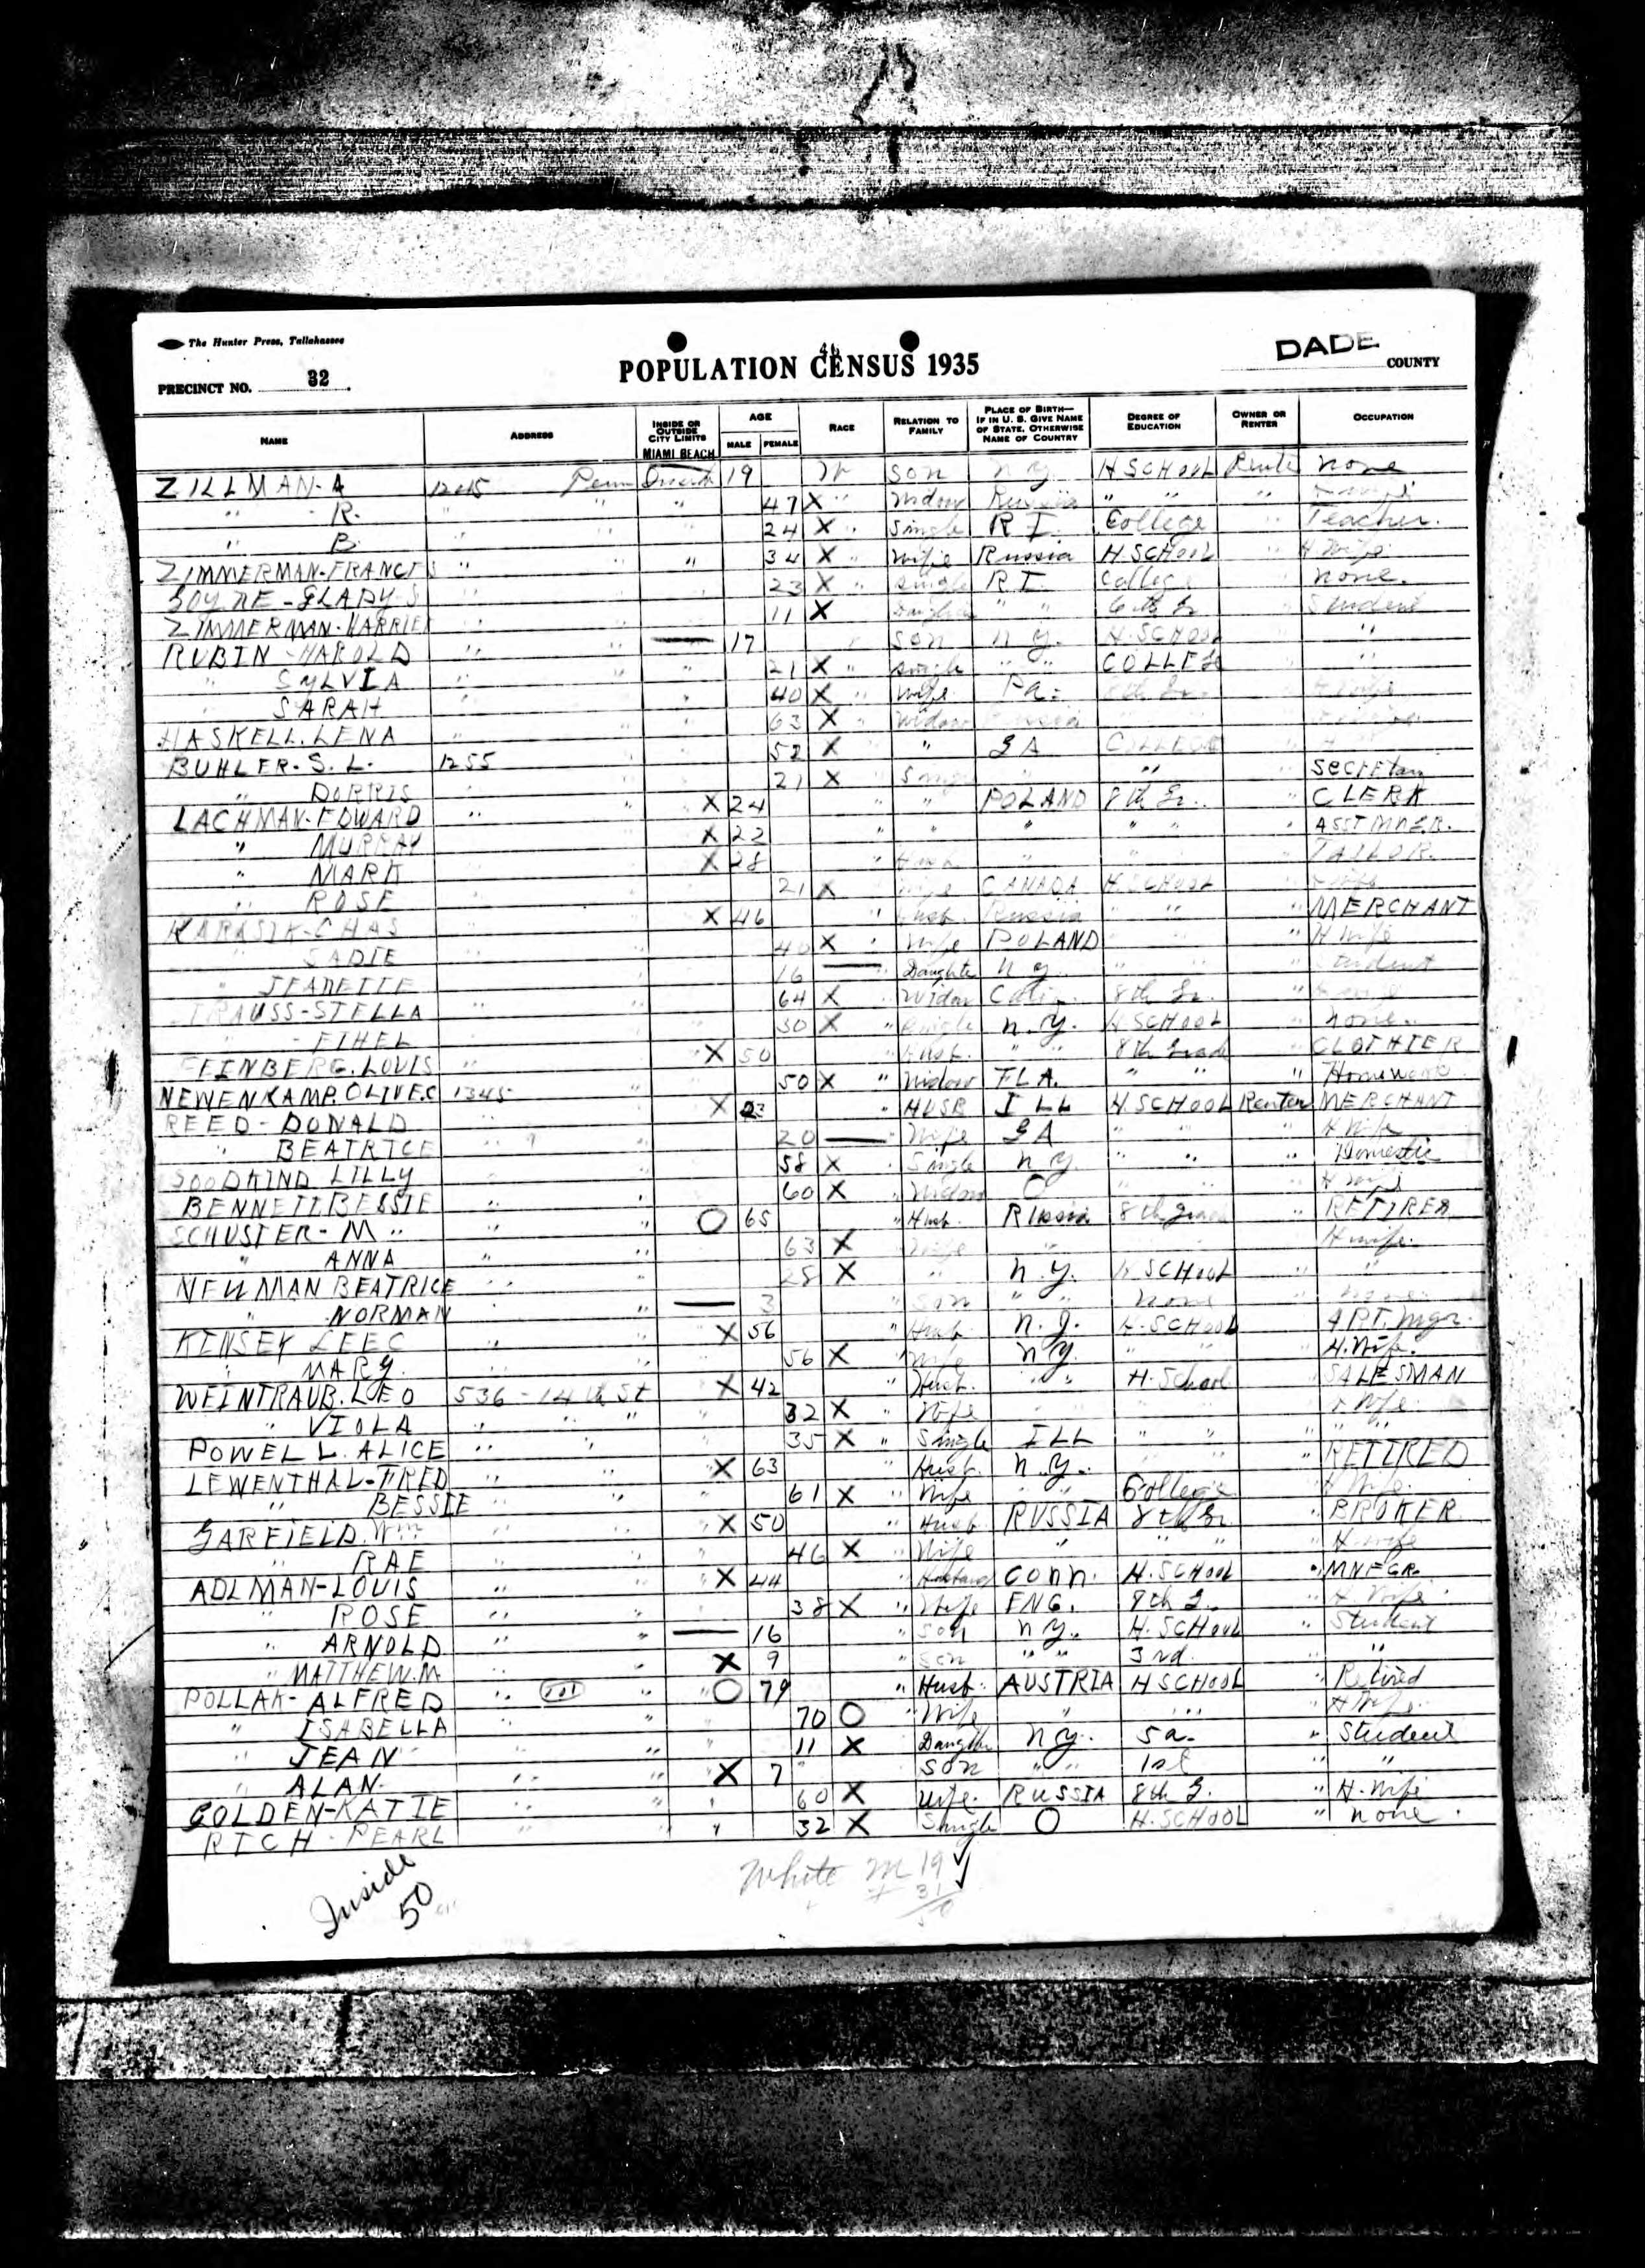 The Hunter Press, Tallahassee
46
POPULATION CENSUS 1935
DADE COUNTY
PRECINCT NO. 32.
NAME ADDRESS INSIDE OR OUTSIDE CITY LIMITS AGE MALE FEMALE RACE RELATION TO FAMILY PLACE OF BIRTH—IF IN U. S. GIVE NAME OF STATE. OTHERWISE NAME OF COUNTRY DEGREE OF EDUCATION OWNER OR RENTER OCCUPATION
MIAMI BEACH
ZILLMAN-A Penn 19 W Son n y H SCHOOL none
" R. " " " 47 X " Widow Russia " " "
" B. " " 24 X " Single R I College " Teacher.
ZIMMERMAN-FRANCES " " 34 X " Wife Russia H. SCHOOL " H Wife
GLADYS " 23 X " Single R I. College none.
ZIMMERMAN-HARRIET " 11 X " " 6th Gr Student
RUBIN HAROLD " — 17 " Son n y. H. SCHOOL "
" SYLVIA " " 21 X " Single " " COLLEGE "
" SARAH " " 40 X " Wife Pa.
HASKELL. LENA " " 63 X " Widow Russia
BUHLER. S. L. 1255 52 X " GA COLLEGE
" DORRIS " 21 X " Single " " Secretary
LACHMAN-EDWARD " " X 24 " " POLAND 8th Gr. " CLERK
" MURRAY X 22 " " " " " " ASST MNGR.
" MARK X 28 " " " TAILOR.
" ROSE 21 X Wife CANADA H. SCHOOL "
KARASIK-CHAS X 46 " Husb. Russia " " " MERCHANT
" SADIE 40 X " Wife POLAND " H Wife
" JEANETTE 16 — " Daughter n y " " " Student
STELLA " " 64 X " Widow 8th Gr. "
" ETHEL 30 X " Single n.y. H SCHOOL " none.
FEINBERG. LOUIS " X 50 " Husb. " " 8th Grade " CLOTHIER
NEWENKAMP. OLIVE.C 1345 " 50 X " Widow FLA. " " " Homework
REED-DONALD X 23 " HUSB ILL H. SCHOOL Renter MERCHANT
" BEATRICE " " 20 — " Wife GA " " H Wife
LILLY 58 X " Single n y " " " Domestic
BENNETT BESSIE " " 60 X " Widow O " H Wife
SCHUSTER-M " " " O 65 " Husb. Russia 8th grade " RETIRED
" ANNA " " 63 X Wife " H wife.
NEUMAN BEATRICE " " 28 X " n.y. H SCHOOL " "
" NORMAN " — 3 son " " none "
KINSEY LEE C " " X 56 " Husb n.J. H. SCHOOL APT. Mgr
" MARY. " " 56 X " Wife n y. " " H. Wife.
WEINTRAUB. LEO 536 - 14th St X 42 " Husb. " " H. School SALESMAN
" VIOLA " " " 32 X " Wife Wife.
POWELL. ALICE " " 35 X " Single ILL " " " "
LEWENTHAL-FRED " " " X 63 " Husb. n.y. " RETIRED
" BESSIE " " 61 X " Wife " College " H Wife.
GARFIELD. Wm " " " X 50 " Husb RUSSIA 8th Gr " BROKER
" RAE 46 X " Wife " " " H wife
ADLMAN-LOUIS " " X 44 " Husband CONN. H. SCHOOL " MNFGR.
" ROSE " " 38 X " Wife ENG. 8th G. " H Wife
" ARNOLD " " — 16 " Son n y. H. SCHOOL " Student
" MATTHEW. M " " X 9 " Son " " 3rd. "
POLLAK-ALFRED " " " O 79 " Husb. AUSTRIA H SCHOOL " Retired
" ISABELLA " " " 70 O " Wife " " H Wife.
" JEAN " " 11 X Daughter n y. 5a. " Student
" ALAN. " " X 7 Son " " 1st " "
GOLDEN-KATIE " " 60 X wife. RUSSIA 8th G. " H. Wife
RICH-PEARL " " 32 X Single O H. SCHOOL " none.
Inside
50
White M 19
31
50